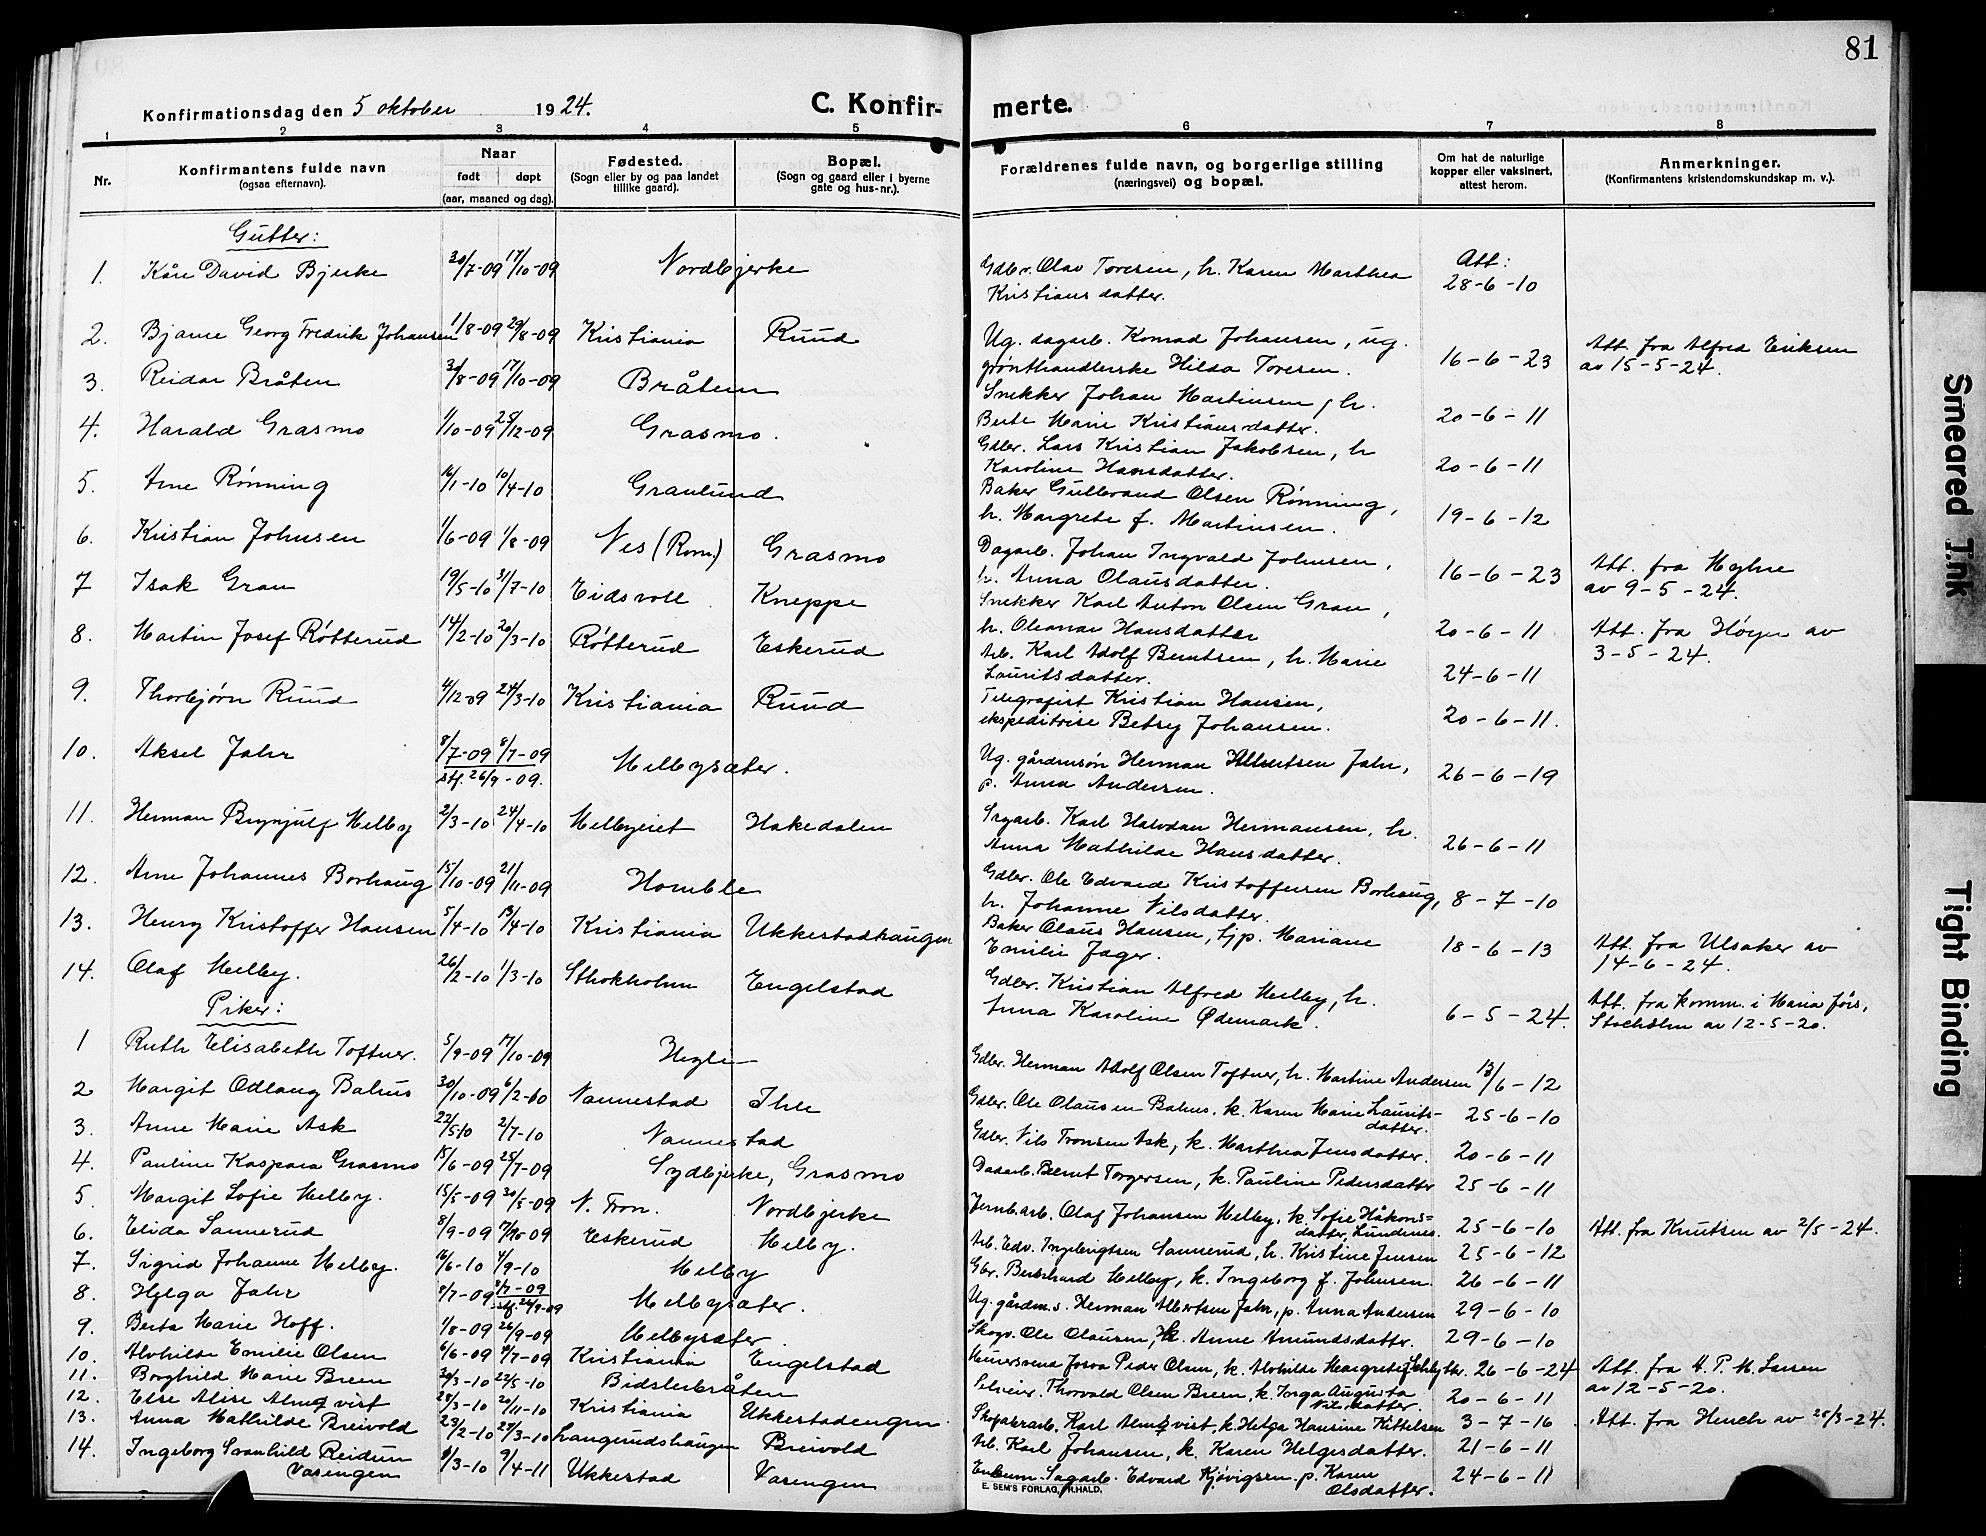 81
Konfirmationsdag den 5 oktober 1924.
C. Konfir-
merte.
1 2 3 4 5 6 7 8
Nr.
Konfirmantens fulde navn
(ogsaa efternavn).
Naar
født døpt
(aar, maaned og dag).
Fødested.
(Sogn eller by og paa landet
tillike gaard).
Bopæl.
(Sogn og gaard eller i byerne
gate og hus-nr.).
Forældrenes fulde navn, og borgerlige stilling
(næringsvei) og bopæl.
Om hat de naturlige
kopper eller vaksinert,
altest herom.
Anmerkninger.
(Konfirmantens kristendomskundskap m. v.).
Gutter:
Att:
1. Kåre David Bjerke 30/7-09 17/10-09 Nordbjerke Gdbr. Olav Toresen, h. Karen Marthea 28-6-10
Kristiansdatter.
2. Bjarne Georg Fredrik Johansen 1/8-09 29/8-09 Kristiania Ruud Ug. dagarb. Konrad Johansen, ug. 16-6-23 Att. fra Alfred Eriksen
grønthandlerske Hilda Toresen. av 15-5-24.
3. Reidar Bråten 30/8-09 17/10-09 Bråten Snekker Johan Martinsen, h. 20-6-11
Berte Marie Kristiansdatter.
4. Harald Grasmo 1/10-09 25/12-09 Grasmo. Gdbr. Lars Kristian Jakobsen, h 20-6-11
Karoline Hansdatter.
5. Arne Rønning 16/1-10 10/4-10 Granlund Baker Gulbrand Olsen Rønning, 19-6-12
h. Margrete f. Martinsen.
6. Kristian Johnsen 1/6-09 1/8-09 Nes (Rom.) Grasmo Dagarb. Johan Ingvald Johnsen, 16-6-23 Att. fra Hghne
h. Anna Olausdatter. av 9-5-24.
7 Isak Gran 19/5-10 31/7-10 Eidsvoll Kneppe Snekker Karl Anton Olsen Gran, 20-6-11 Att. fra Høyer av
h. Oleanar Hansdatter 3-5-24.
8. Martin Josef Røtterud 14/2-10 20/3-10 Røtterud Eskerud Arb. Karl Adolf Berntsen, h. Marie 24-6-11
Lauritsdatter.
9. Thorbjørn Ruud 4/12-09 24/3-10 Kristiania Ruud Telegrafist Kristian Hansen, 20-6-11.
ekspeditrise Betsy Johansen.
10. Aksel Jahr 8/7-09 8/7-09 Melbysæter. Ug. gårdmsøn Herman Albertsen Jahr, 26-6-19
stf. 26/9-09. p. Anna Andersen.
11. Herman Brynjulf Melby 2/3-10 24/4-10 Melbyeiet Hakedalen Sagarb. Karl Halvdan Hermansen, h. 26-6-11
Anna Mathilde Hansdatter.
12. Arne Johannes Borhaug 15/10-09 21/11-09 Homble Gdbr. Ole Edvard Kristoffersen Borhaug, 8-7-10
h. Johanne Nilsdatter.
13. Henry Kristoffer Hansen 5/4-10 13/4-10 Kristiania Ukkestadhaugen Baker Olaus Hansen, tjp. Mariane 18-6-13 Att. fra Ulsaker av
Emilie Jager. 14-6-24.
14. Olaf Melby. 26/2-10 1/3-10 Sthokholm Engelstad Gdbr. Kristian Alfred Melby, h. 6-5-24. Att. fra komm. i Maria førs,
Anna Karoline Ødemark. Stocholm av 12-5-20.
Piker:
1 Ruth Elisabeth Toftner. 5/9-09 17/10-09 Hegli Gdbr. Herman Adolf Olsen Toftner, h. Martine Andersen 13/6-12
2 Margit Odlaug Bahus 30/10-09 6/2-10 Nannestad Ihle Gdbr. Ole Olausen Bahus, k. Karen Marie Laurits- 25-6-10
datter.
3. Anne Marie Ask 22/5-10 2/7-10 Nannestad Gdbr. Nils Tronsen Ask, k. Marthea Jensdatter. 20-6-11
4. Pauline Kaspara Grasmo 15/6-09 25/7-09 Sydbjerke, Grasmo Dagarb. Bernt Torgersen, k. Pauline Pedersdatter 25-6-11
5. Margit Sofie Melby. 15/5-09 30/5-09 N. Fron. Nordbjerke Jernb.arb. Olaf Johansen Melby, k. Sofie Håkons- 25-6-10 Att. fra Knutsen av 2/5-24.
datter Lundenes.
6. Elida Sannerud 8/9-09 17/10-09 Eskerud Melby. Arb. Edv. Ingebrigtsen Sannerud, h. Kristine Jensen 25-6-12
7. Sigrid Johanne Melby. 16/6-10 4/9-10 Melby Gbr. Bernhard Melby, k. Ingeborg f. Johnsen. 26-6-11
8. Helga Jahr 8/7-09 8/7-09 Melbysæter. Ug. gårdm.s. Herman Albertsen Jahr, p. Anna Andersen 29-6-10
stf. 26/9-09
9. Berta Marie Hoff. 1/8-09 26/9-09 Melbysæter. Skogv. Ole Olausen, k. Anne Amundsdatter. 29-6-10
10. Alvhilde Emilie Olsen 6/6-09 4/7-09 Kristiania Engelstad Murersvend Josva Peder Olsen, k. Alvhilde Margrete 26-6-24 Att. fra H. P. M. Larsen
av 12-5-20.
11. Borghild Marie Breen 20/3-10 22/5-10 Bidslerbråten Selveier Thorvald Olsen Breen, k. Inga Augusta 20-6-11
Nilsdatter.
12. Else Alise Almqvist 28/3-10 20/11-10 Kristiania Ukkestadengen. Skofabrarb. Karl Almqvist, k. Helga Hansine Kittelsen 3-7-16 Att. fra Hench av 28/3-24.
13. Anna Mathilde Breivold 23/2-10 27/3-10 Langerudshaugen Breivold Arb. Karl Johansen, k. Karen Helgesdatter. 21-6-11
14. Ingeborg Svanhild Reidun 9/3-10 9/4-11 Ukkestad Vasengen Enkem. Sagarb. Edvard Kjøvigsen p. Karen 24-6-11
Vasengen Olsdatter.
E. SEM'S FORLAG, FR.HALD.
Smeared Ink
Tight Binding